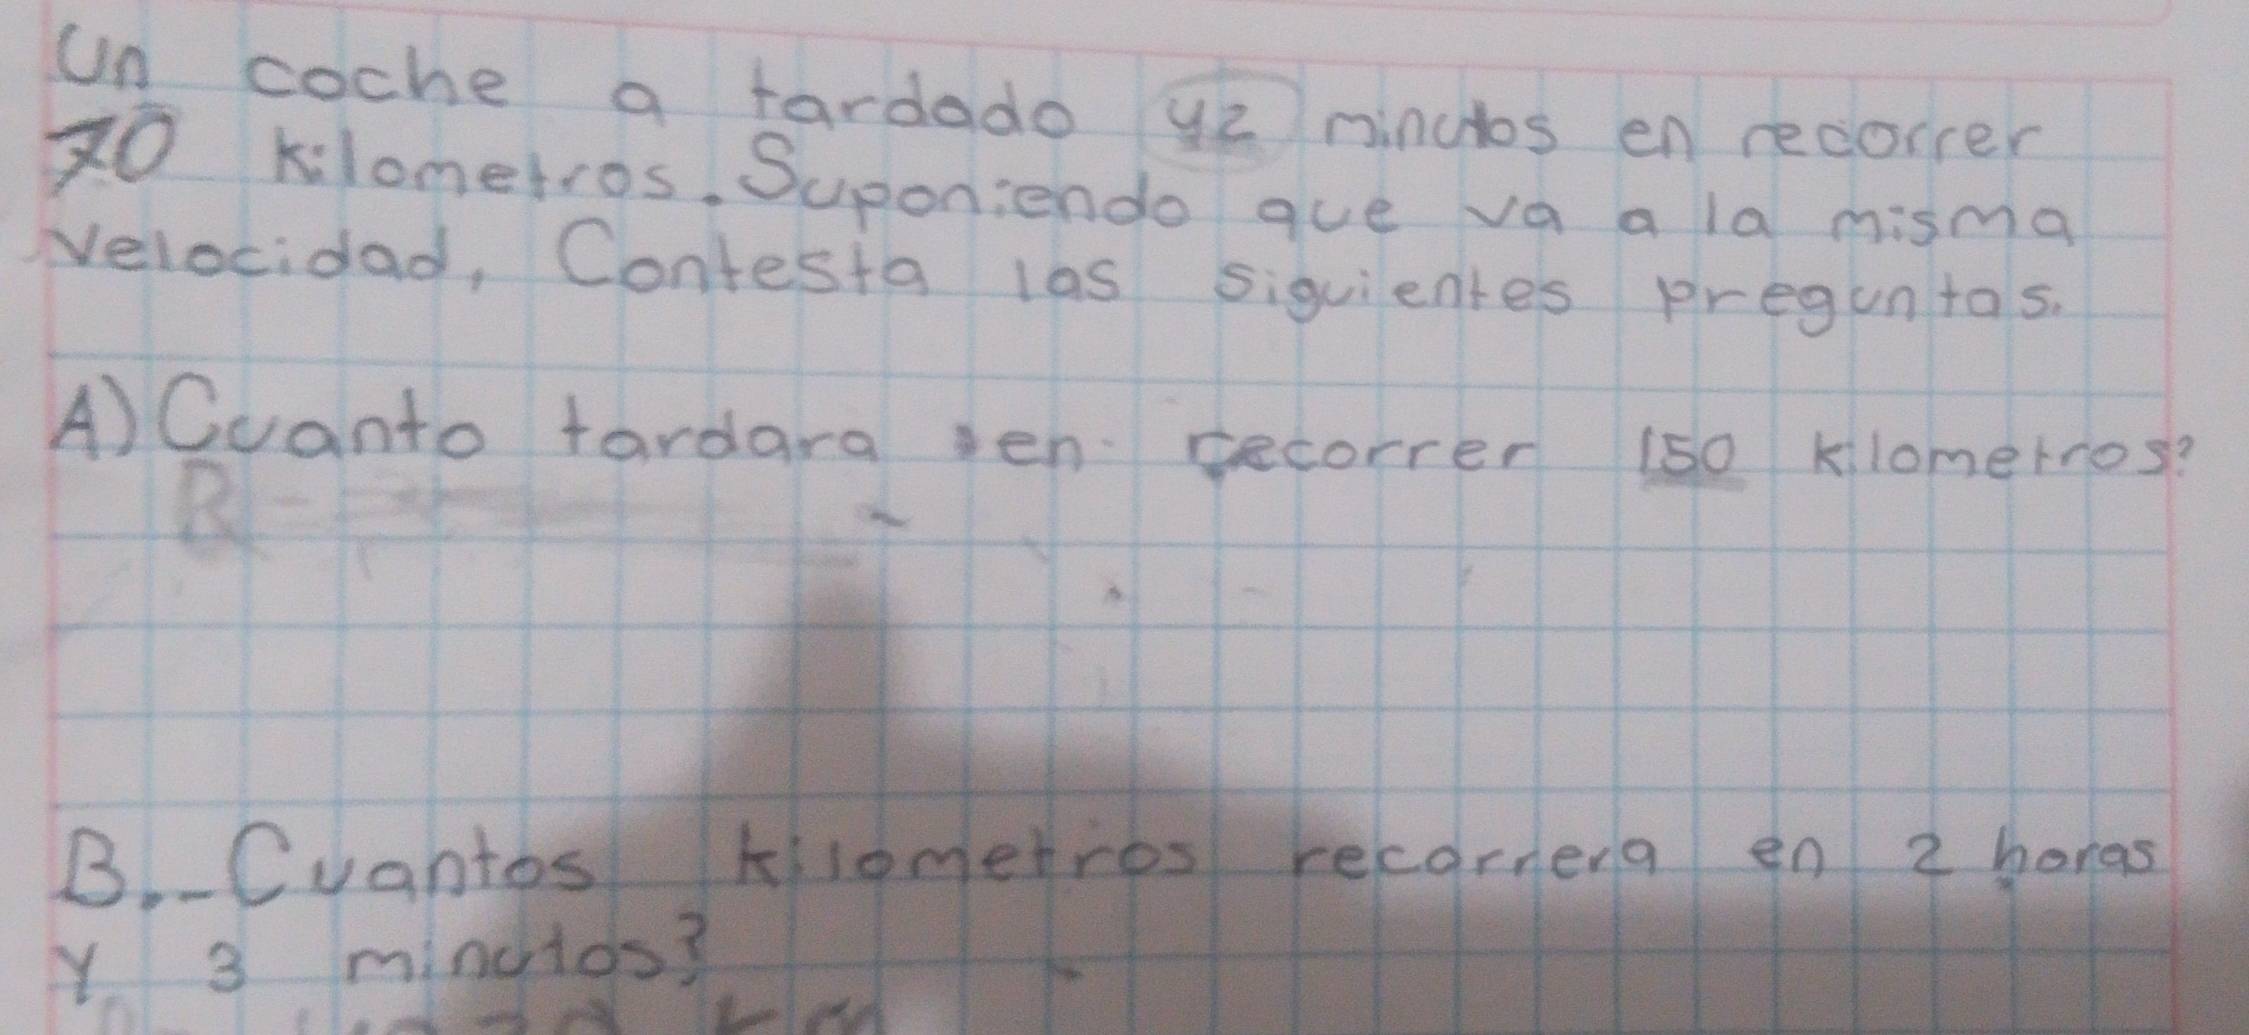 Un coche a tardado 42 minutos en recorrer
70 kilometros. Suponiendo que va a la misma
velocidad, Contesta las siguientes preguntas.
A) Cuanto tardara en recorrer 150 klometros?
R
B.- Cuantos kilometros recorrera en 2 horas
Y 3 minutos?